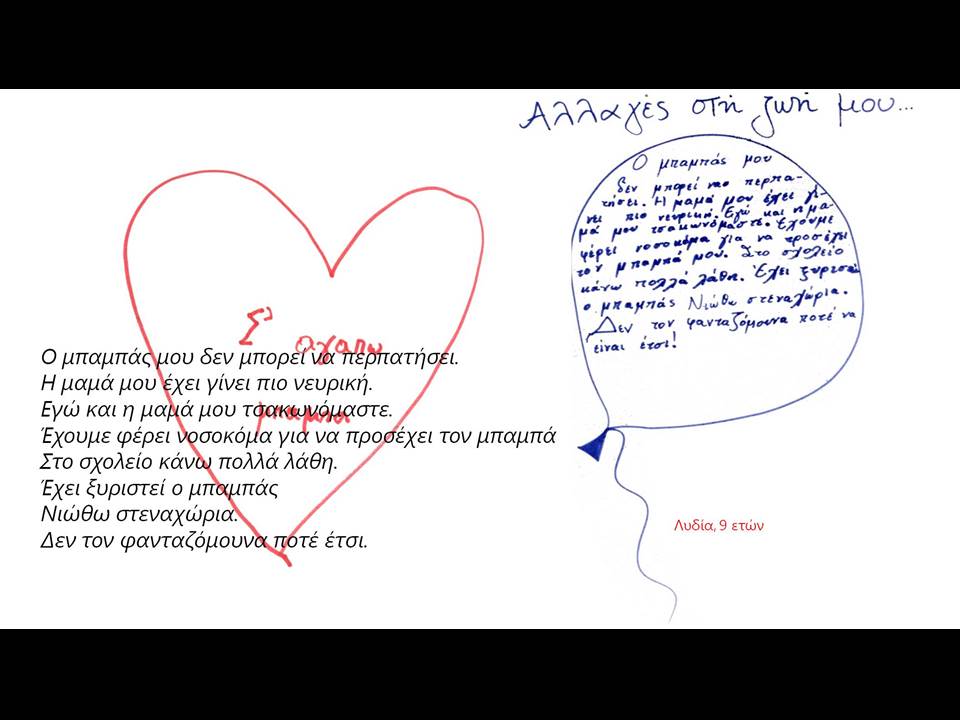 Αλλαγές στη ζωή μου...
Ο μπαμπάς μου
δεν μπορεί να περπα-
τήσει. Η μαμά μου έχει γί-
νει πιο νευρική. Εγώ και η μα-
μά μου τσακωνόμαστε. Έχουμε
φέρει νοσοκόμα για να προσέχει
τον μπαμπά μου. Στο σχολείο
κάνω πολλά λάθη. Έχει ξυριστεί
ο μπαμπάς Νιώθω στεναχώρια.
Δεν τον φανταζόμουνα ποτέ να
είναι έτσι!
Σ' αγαπώ
μπαμπά
Ο μπαμπάς μου δεν μπορεί να περπατήσει.
Η μαμά μου έχει γίνει πιο νευρική.
Εγώ και η μαμά μου τσακωνόμαστε.
Έχουμε φέρει νοσοκόμα για να προσέχει τον μπαμπά
Στο σχολείο κάνω πολλά λάθη.
Έχει ξυριστεί ο μπαμπάς
Νιώθω στεναχώρια.
Δεν τον φανταζόμουνα ποτέ έτσι.
Λυδία, 9 ετών